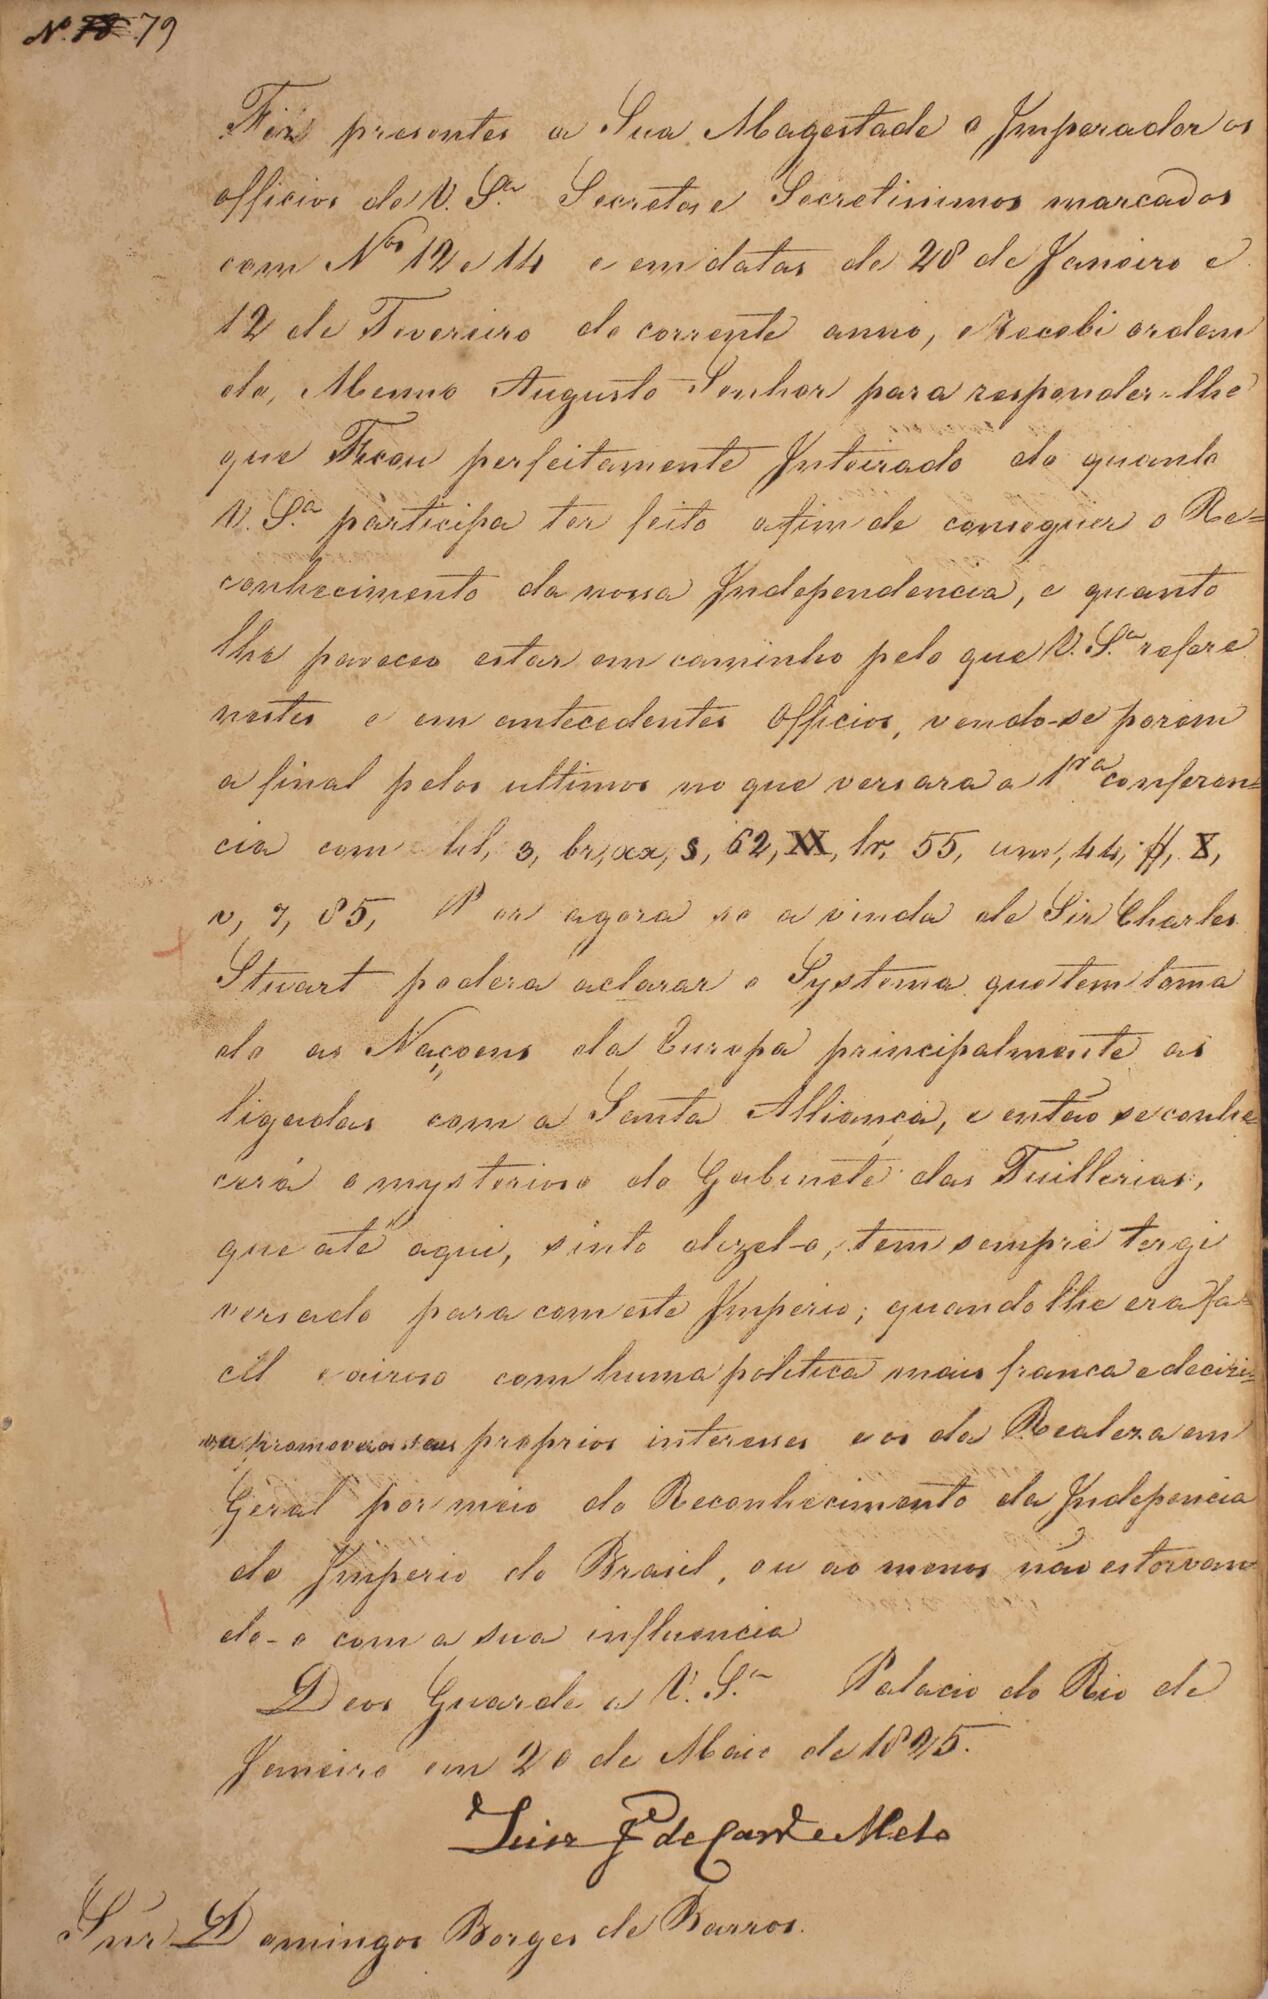 Nº 78 79
Fiz presentes a Sua Magestade o Imperador os
officios de V. Sª Secreto e Secretissimos marcados
com Nos 12 e 14 e em datas de 28 de Janeiro e
12 de Fevereiro do corrente anno, e recebi ordem
do, Mesmo Augusto Senhor para responder-lhe
que Ficou perfeitamente Inteirado do quanto
V. Sª participa ter feito afim de conseguir o Re=
conhecimento da nossa Independencia, e quanto
lhe pareceo estar em caminho pelo que V. Sª refere
nestes e em antecedentes Officios, vendo-se porem
a final pelos ultimos no que versara a 1ra conferen=
cia com hl, 3, br, xx, s, 62, XX, lr, 55, um, 44, ff, X,
v, 7, 85, Por agora so a vinda de Sir Charles
Stuart podera aclarar o Systema que tem toma
do as Naçoens da Europa principalmente as
ligadas com a Santa Alliança, e então se conhe=
cerá o mysterioso do Gabinete das Tuillerias,
que até aqui, sinto dizel-o, tem sempre tergi
versado para com este Imperio; quando lhe era fa=
cil e airoso com huma politica mais franca e decizi=
va promover os seus proprios interesses e os da Realeza em
Geral por meio do Reconhecimento da Indepencia
do Imperio do Brasil, ou ao menos não estorvan=
do-o com a sua influencia
Deos Guarde a V. Sª Palacio do Rio de
Janeiro em 20 de Maio de 1825.
Luiz Je de Carvo e Melo
Snr. D Domingos Borges de Barros.